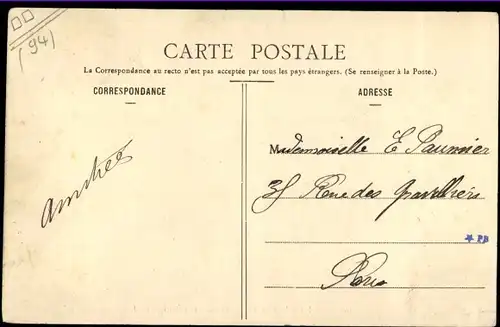 (94)
CARTE POSTALE
La Correspondance au recto n'est pas acceptée par tous les pays étrangers. (Se renseigner à la Poste.)
CORRESPONDANCE
ADRESSE
Mademoiselle E Paumier
Rue des Gravilliers
* PB
Paris